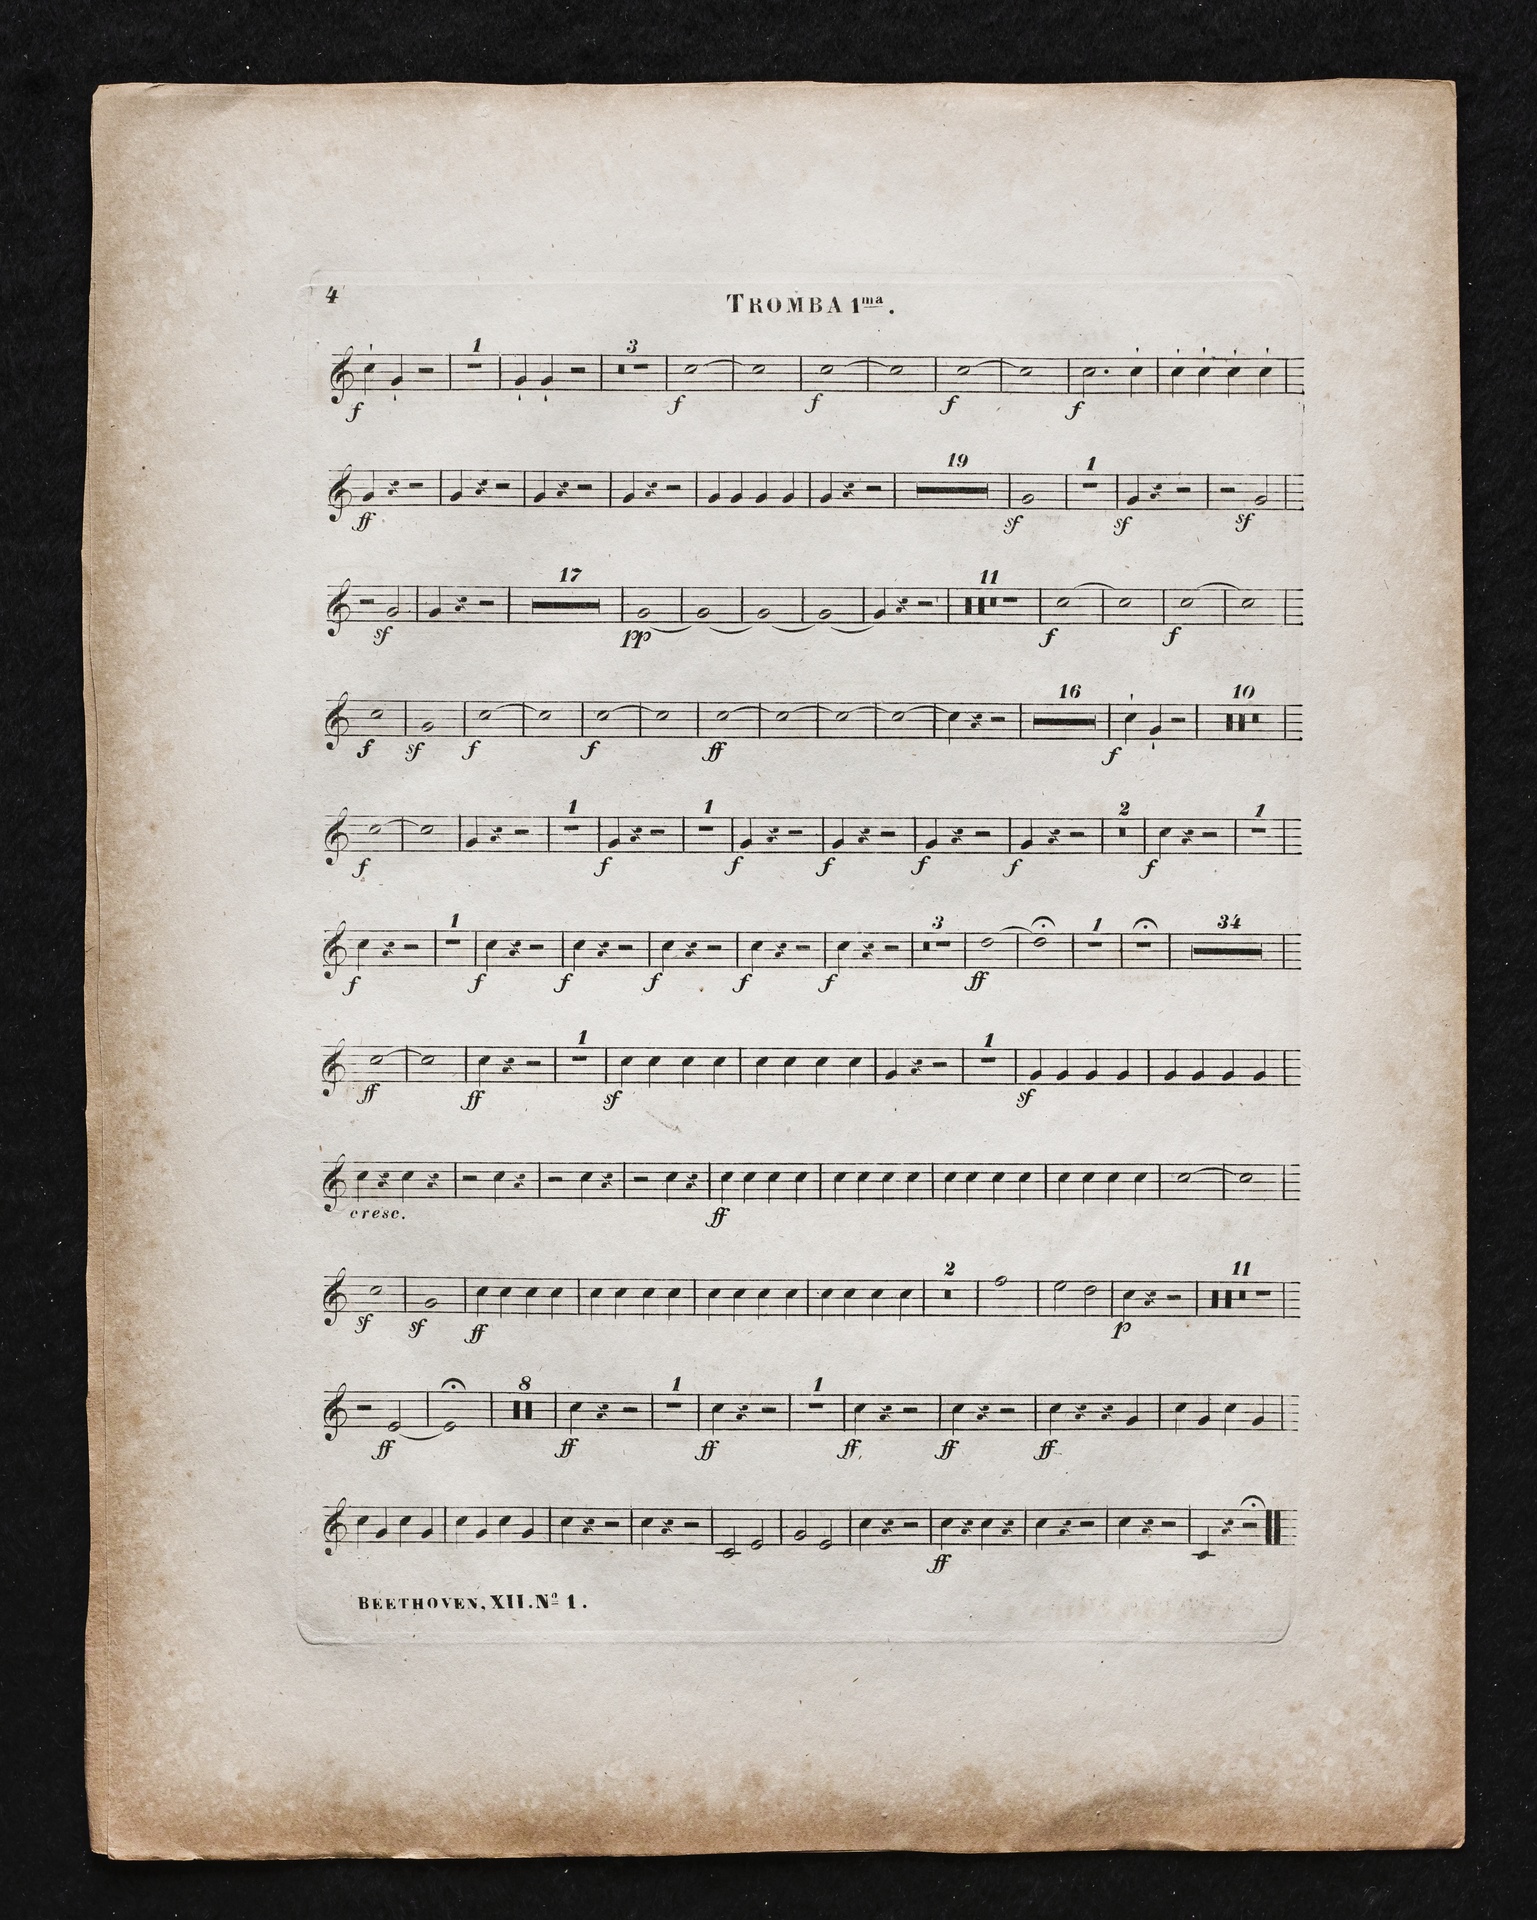 4
TROMBA 1ma.
1 3
f f f f f
19 1
ff sf sf sf
17 11
sf pp f f
16 10
f sf f f ff f
1 1 2 1
f f f f f f f
1 3 1 34
f f f f f f ff
1 1
ff ff sf sf
cresc. ff
2 11
sf sf ff p
8 1 1
ff ff ff ff ff ff
ff
BEETHOVEN, XII. No 1.